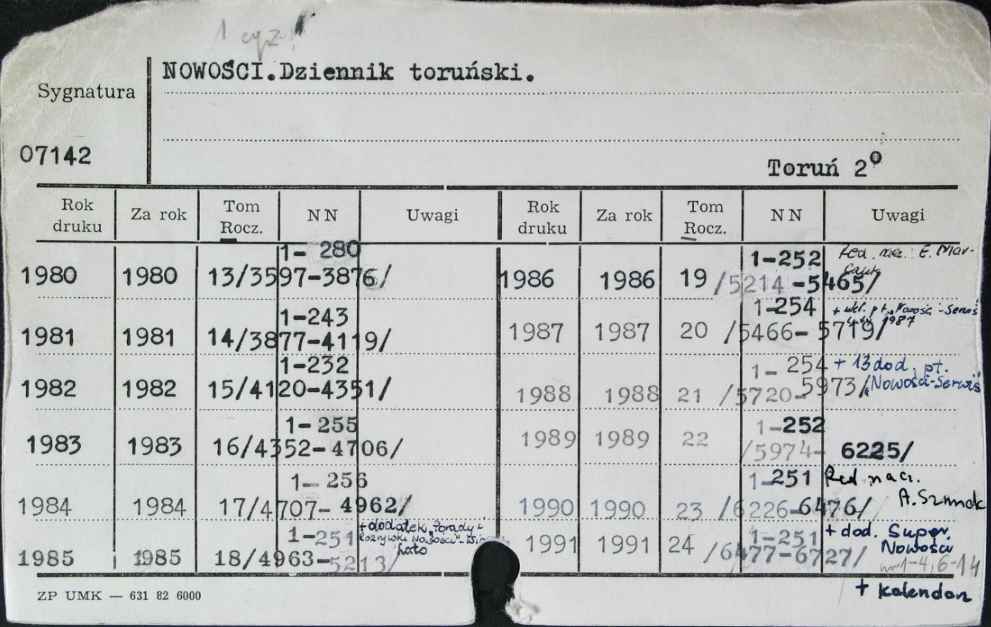 1 egz.
NOWOŚCI.Dziennik toruński.
Sygnatura
07142
Toruń 2°
Rok druku Za rok Tom Rocz. NN Uwagi
1-280
1980 1980 13/3597-3876/
1-243
1981 1981 14/3877-4119/
1-232
1982 1982 15/4120-4351/
1-255
1983 1983 16/4352-4706/
1-256
1984 1984 17/4707-4962/
1-251 + dodatek
Lato
1985 1985 18/4963-5213/
Rok druku Za rok Tom Rocz. NN Uwagi
1-252 Red. na. E. Mar-
1986 1986 19 /5214-5465/
1-254
1987 1987 20 /5466-5719/ 1987
1-254 + 13 dod. pt.
1988 1988 21 /5720-5973/ Nowości-Serwis
1-252
1989 1989 22 /5974-6225/
1-251 Red. nacz.
1990 1990 23 /6226-6476/
1-251 + dod. Super
1991 1991 24 /6477-6727/ Nowości
nr 1-4, 6-14
+ kalendarz
ZP UMK — 631 82 6000